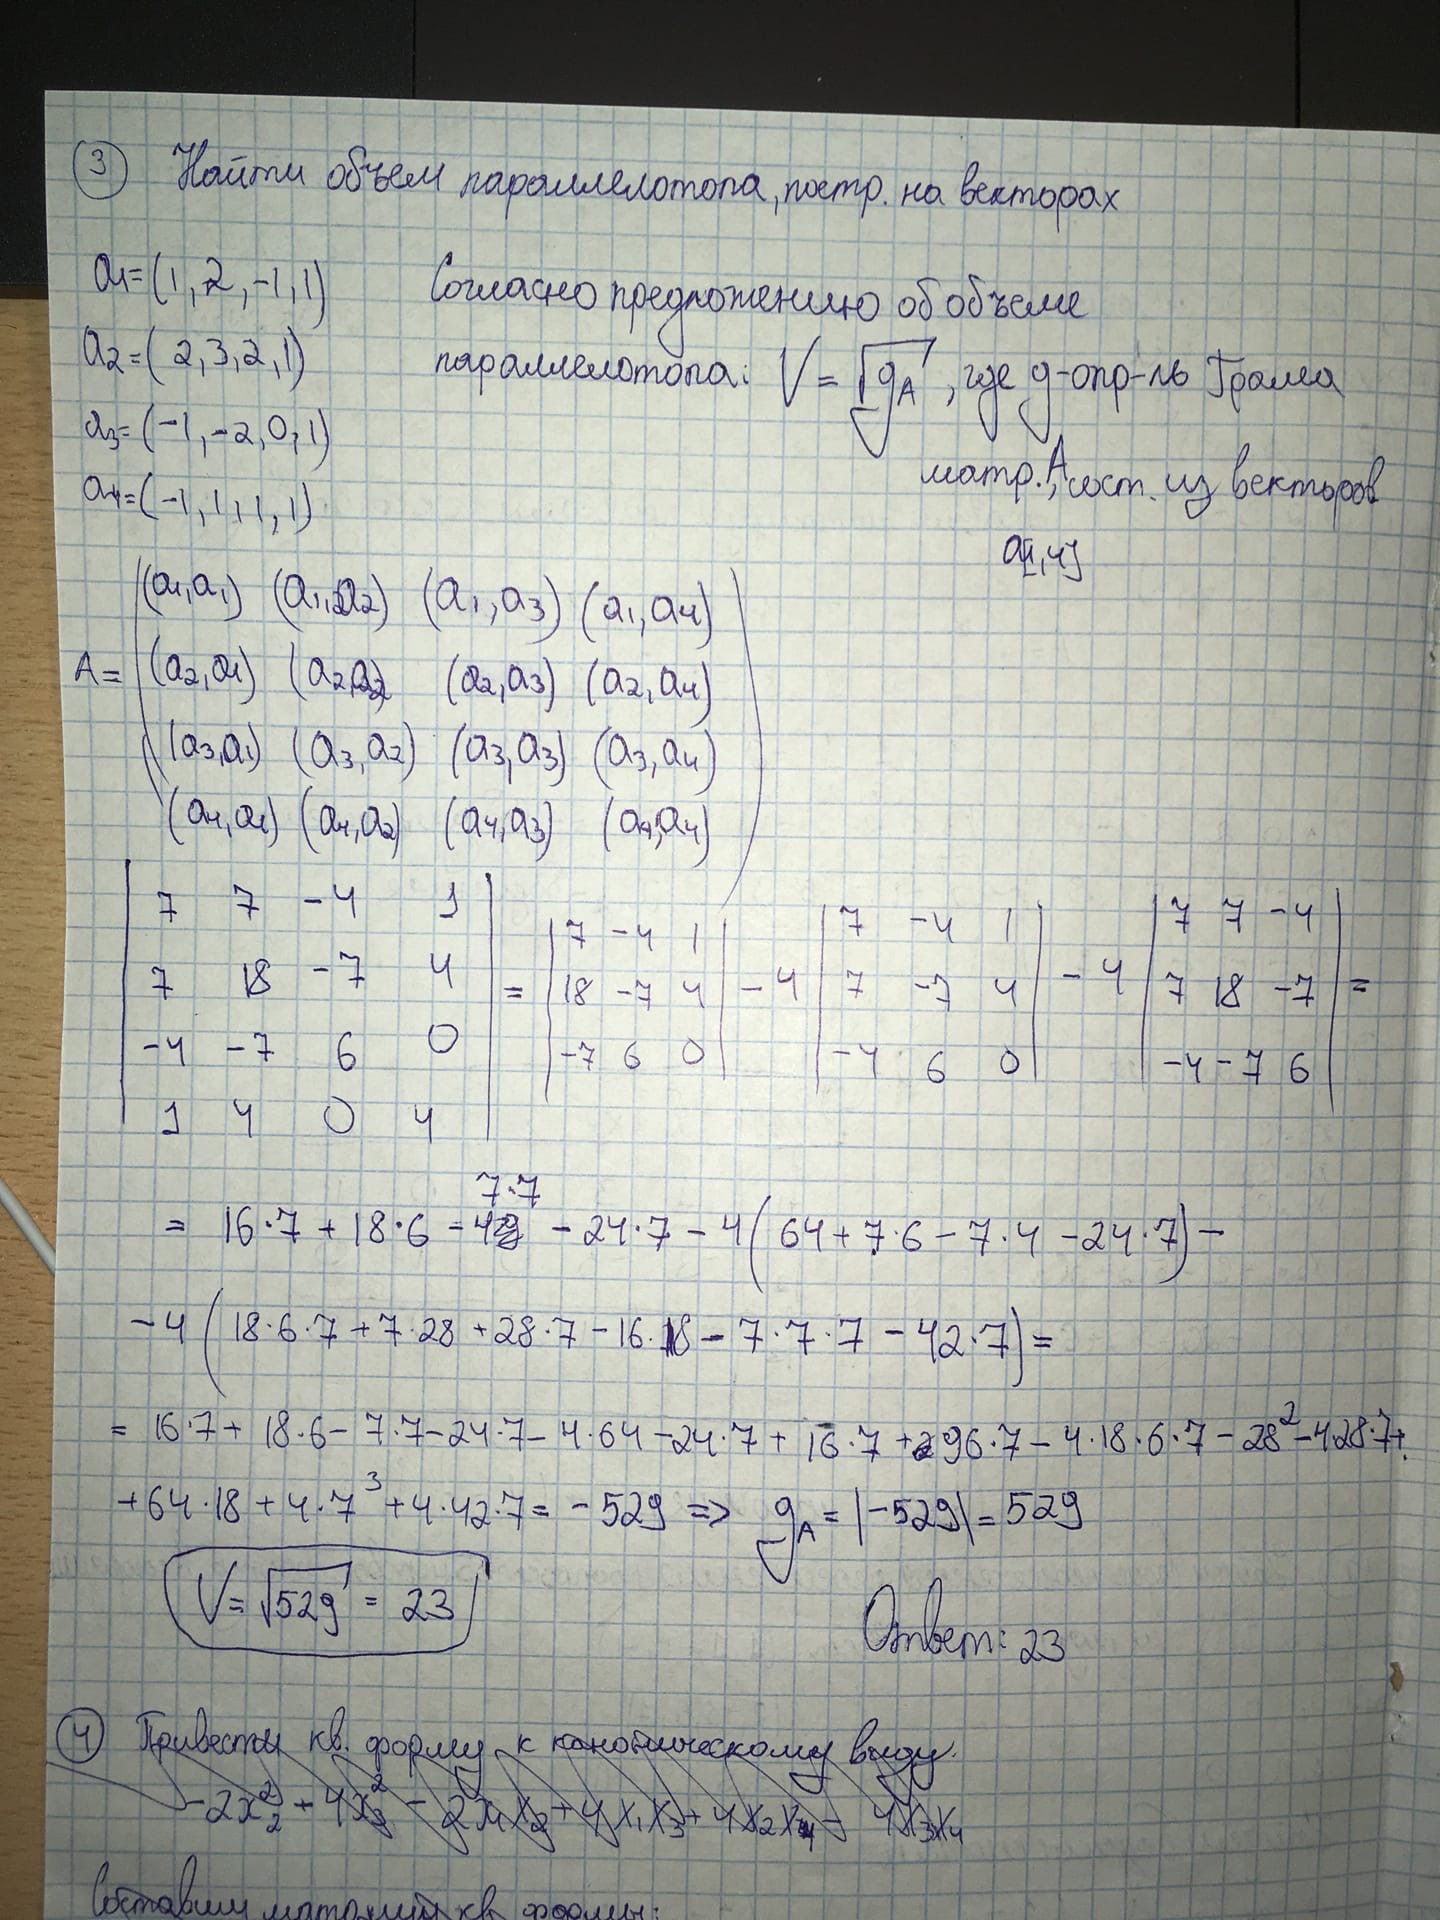 3 Найти объем параллелотопа, постр. на векторах
a1=(1, 2, -1, 1)
a2=(2, 3, 2, 1)
a3=(-1, -2, 0, 1)
a4=(-1, 1, 1, 1)
Согласно предложению об объеме
параллелотопа: V = √gA, где g-опр-ль Грама
матр. A, сост. из векторов
a[1,4]
A=
(a1,a1) (a1,a2) (a1,a3) (a1,a4)
(a2,a1) (a2,a2) (a2,a3) (a2,a4)
(a3,a1) (a3,a2) (a3,a3) (a3,a4)
(a4,a1) (a4,a2) (a4,a3) (a4,a4)
|7 7 -4 1| |7 -4 1| |7 -4 1| |7 7 -4|
|7 18 -7 4| = |18 -7 4| -4 |7 -7 4| -4 |7 18 -7| =
|-4 -7 6 0| |-7 6 0| |-4 6 0| |-4 -7 6|
|1 4 0 4|
= 16·7 + 18·6 - 7·7 - 24·7 - 4(64 + 7·6 - 7·4 - 24·7) -
-4(18·6·7 + 7·28 + 28·7 - 16·18 - 7·7·7 - 42·7) =
= 16·7 + 18·6 - 7·7 - 24·7 - 4·64 - 24·7 + 16·7 + 96·7 - 4·18·6·7 - 28² - 4·28·7 +
+64·18 + 4·7³ + 4·42·7 = -529 => gA = |-529| = 529
V = √529 = 23
Ответ: 23
4 Привести кв. форму к каноническому виду.
-2x₂² + 4x₃² - 2x₁x₂ + 4x₁x₃ + 4x₂x₄ - 4x₃x₄
Составим матрицу кв. формы: